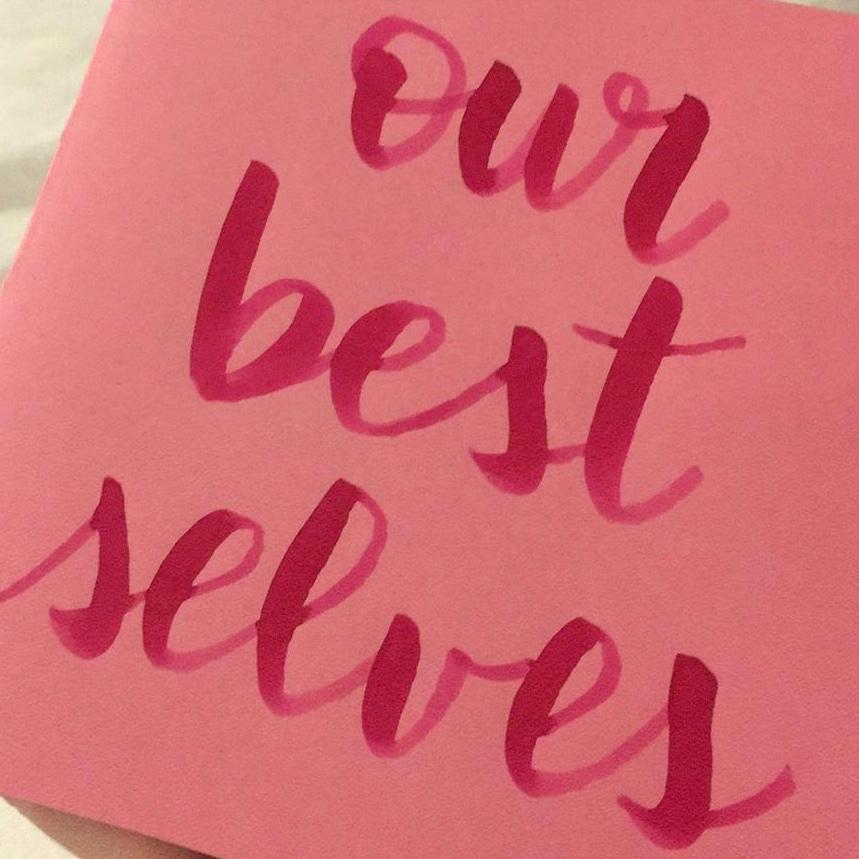 our
best
selves